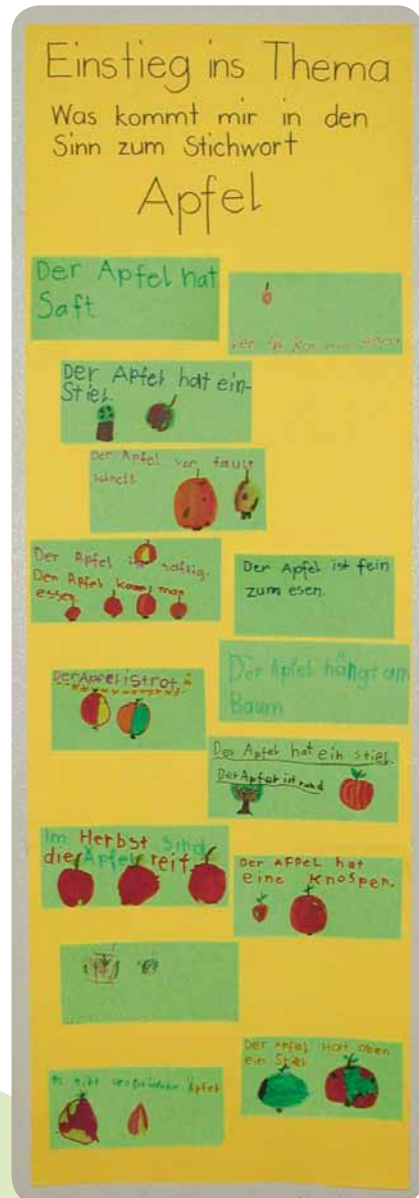 Einstieg ins Thema
Was kommt mir in den
Sinn zum Stichwort
Apfel
Der Apfel hat
Saft.
Der
Der Apfel hat ein-
Stiel.
Der Apfel ver fault
schnell.
Der Apfel ist saftig.
Den Apfel kann man
essen.
Der Apfel ist fein
zum esen.
Der Apfel ist rot
Der Apfel hängt am
Baum
Der Apfel hat ein stiel.
Der Apfel ist rund
Im Herbst sind
die Äpfel reif.
Der APFel hat
eine Knospen.
Der Apfel Hat oben
ein Stiel
Es gibt verschiedene Äpfel